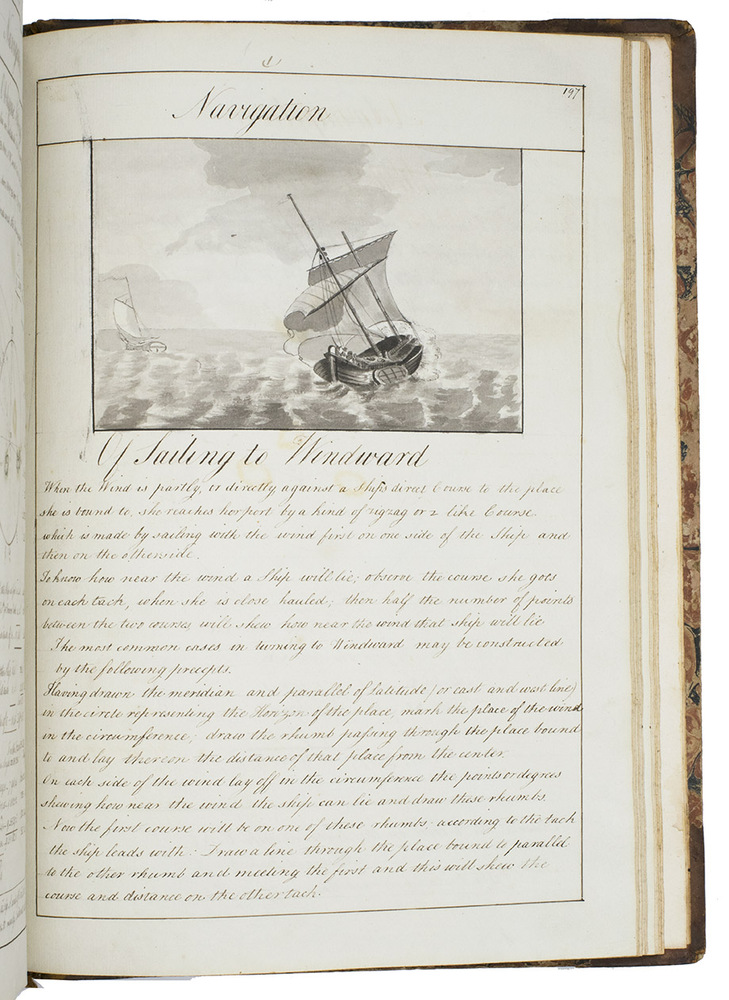 197
Navigation
Of Sailing to Windward
When the Wind is partly, or directly against a Ships direct Course to the place
she is bound to, she reaches her port by a kind of zigzag or z like Course
which is made by sailing with the wind first on one side of the Ship and
then on the otherside.
To know how near the wind a Ship will lie; observe the course she goes
on each tack, when she is close hauled; then half the number of points
between the two courses will shew how near the wind that ship will lie
The most common cases in turning to Windward may be constructed
by the following precepts.
Having drawn the meridian and parallel of Latitude (or east and west line)
in the circle representing the Horizon of the place, mark the place of the wind
in the circumference; draw the rhumb passing through the place bound
to and lay thereon the distance of that place from the center.
On each side of the wind lay off in the circumference the points or degrees
shewing how near the wind the ship can lie and draw these rhumbs.
Now the first course will be on one of these rhumbs, according to the tack
the ship leads with: Draw a line through the place bound to parallel
to the other rhumb and meeting the first and this will shew the
course and distance on the other tack.